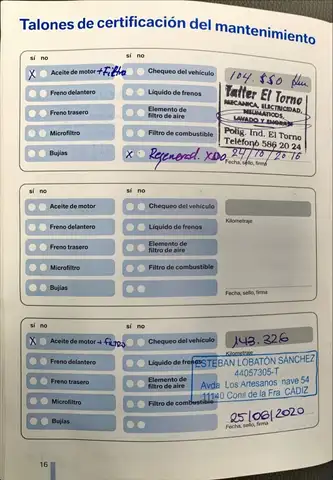 Talones de certificación del mantenimiento
sí no sí no
X Aceite de motor + Filtro Chequeo del vehículo 104.550 km
Freno delantero Líquido de frenos Taller El Torno
MECANICA, ELECTRICIDAD,
NEUMATICOS,
LAVADO Y ENGRASE
Freno trasero Elemento de filtro de aire
Microfiltro Filtro de combustible Polig. Ind. El Torno
Teléfono 586 20 24
Bujías X 24/10/2016
Fecha, sello, firma
sí no sí no
Aceite de motor Chequeo del vehículo
Freno delantero Líquido de frenos Kilometraje
Freno trasero Elemento de filtro de aire
Microfiltro Filtro de combustible
Bujías Fecha, sello, firma
sí no sí no
X Aceite de motor + Chequeo del vehículo 143.326
Kilometraje
Freno delantero Líquido de frenos ESTEBAN LOBATÓN SÁNCHEZ
44057305-T
Freno trasero Elemento de filtro de aire Avda. Los Artesanos nave 54
Microfiltro Filtro de combustible 11140 Conil de la Fra. CÁDIZ
Bujías 25/06/2020
Fecha, sello, firma
16